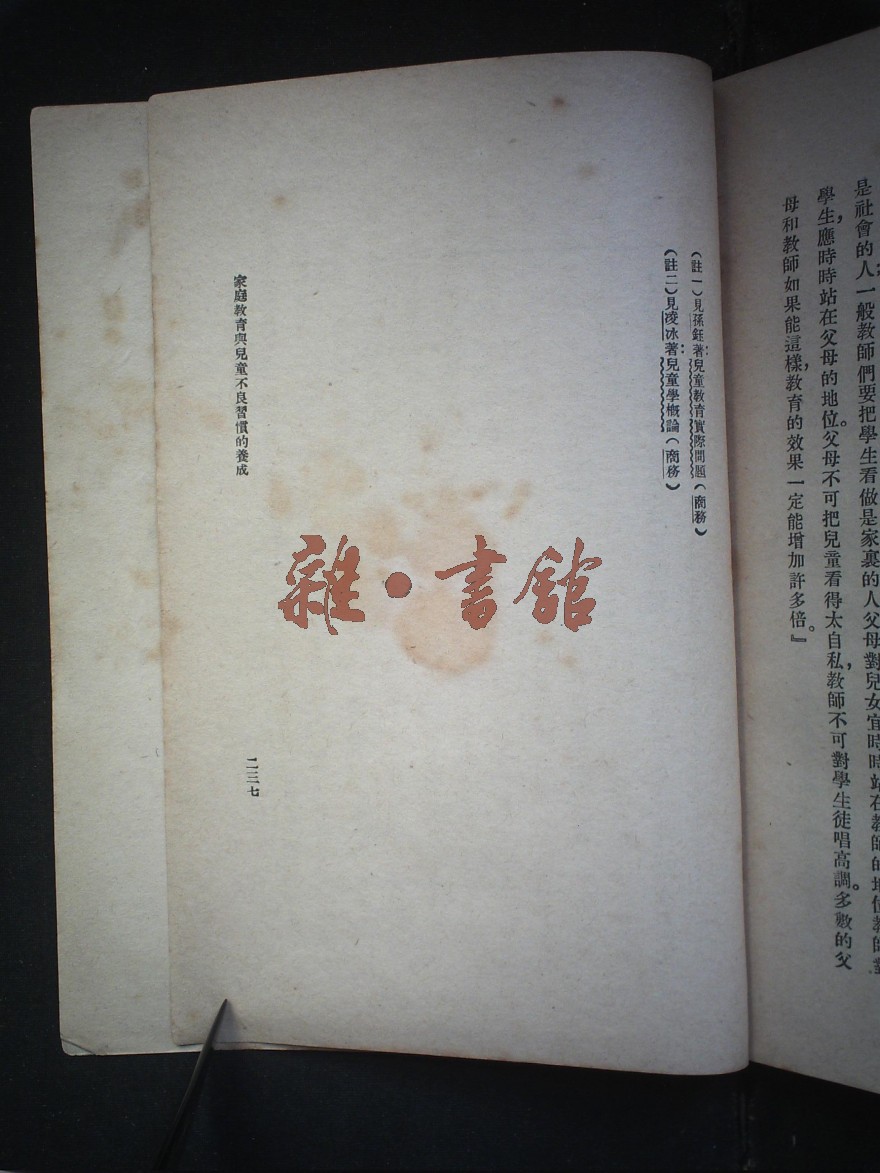 是社會的人一般教師們要把學生看做是家裏的人父母對兒女宜時時站在教師的地位教師對
學生，應時時站在父母的地位。父母不可把兒童看得太自私，教師不可對學生徒唱高調。多數的父
母和教師如果能這樣，教育的效果一定能增加許多倍。』
（註一）見孫鈺著：兒童教育實際問題（商務）
（註二）見凌冰著：兒童學概論（商務）
家庭教育與兒童不良習慣的養成
二三七
雜·書館